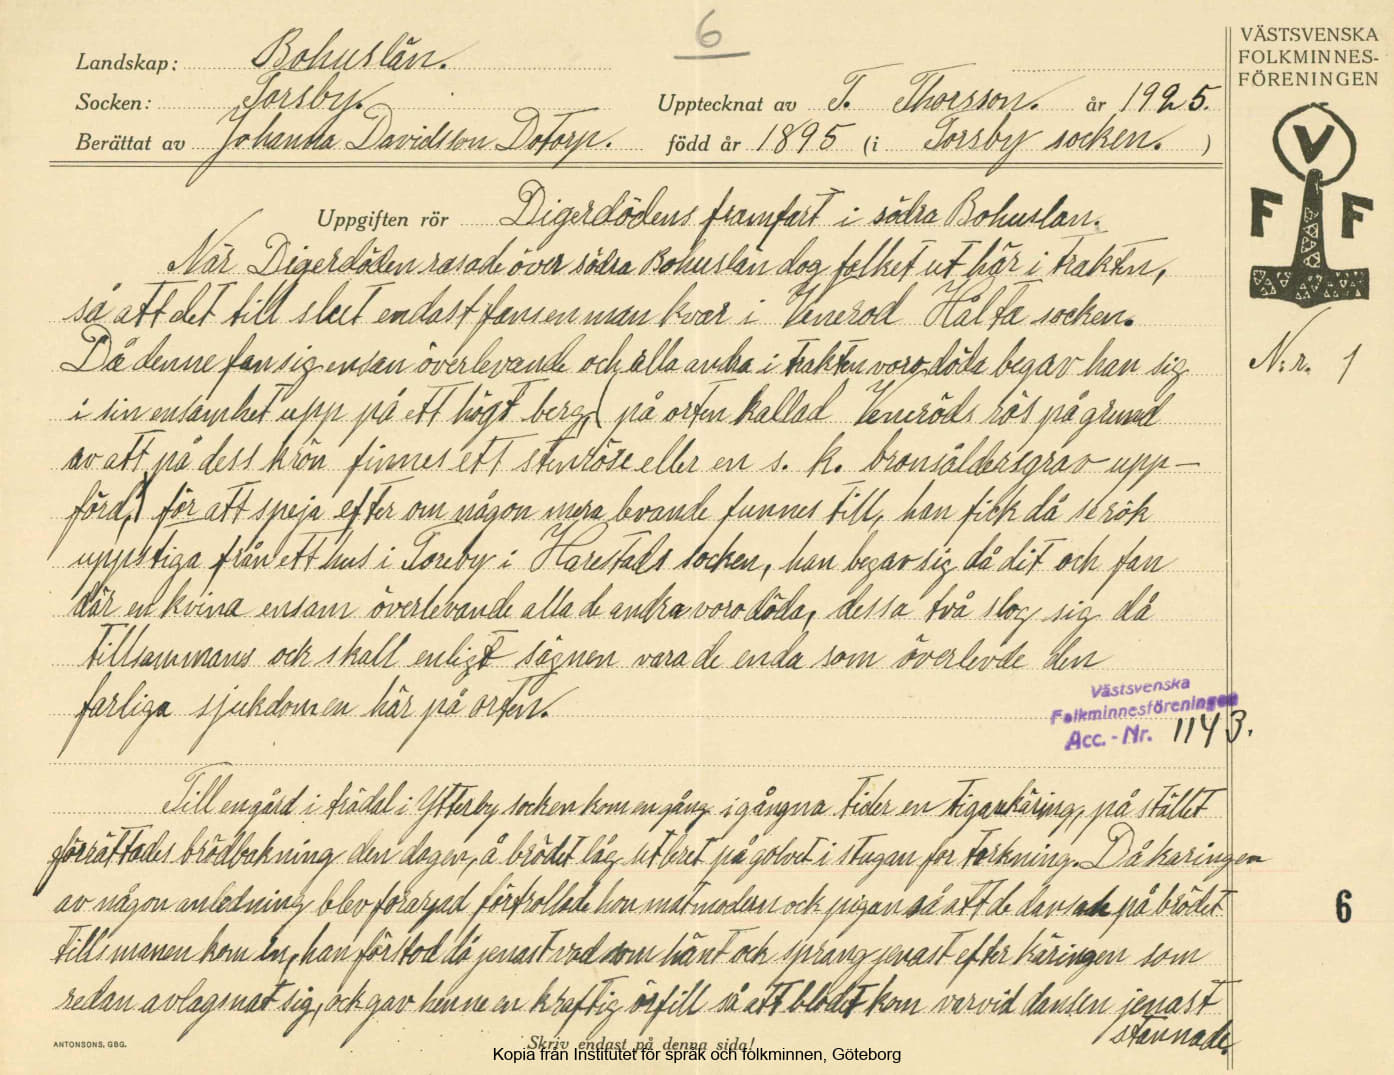 6
VÄSTSVENSKA
FOLKMINNES-
FÖRENINGEN
Landskap: Bohuslän.
Socken: Torsby.
Upptecknat av T. Thorsson. år 1925.
Berättat av Johanna Davidsson Dotorp.
född år 1895 (i Torsby socken. )
V
F F
Uppgiften rör Digerdödens framfart i södra Bohuslan.
När Digerdöden rasade över södra Bohuslän dog folket ut här i trakten,
så att det till slut endast fans en man kvar i Venerod Hålta socken.
Då denne fan sig ensan överlevande och alla andra i trakten voro döda begav han sig
i sin ensamhet upp på ett högt berg, (på orten kallad Veneröds rös på grund
av att på dess krön finnes ett stenröse eller en s. k. bronsåldersgrav upp-
förd,) för att speja efter om någon mera levande funnes till, han fick då se rök
uppstiga från ett hus i Toreby i Harestads socken, han begav sig då dit och fan
där en kvina ensam överlevande alla de andra voro döda, dessa två slog sig då
tillsammans ock skall enligt sägnen vara de enda som överlevde den
farliga sjukdomen här på orten.
Nr. 1
Västsvenska
Folkminnesföreningen
Acc.-Nr. 1143.
Till en gård i trädal i Ytterby socken kom en gång i gångna tider en tigarkäring, på stället
förrättades brödbakning den dagen, å brödet låg utbret på golvet i stugan for torkning. Då karingen
av någon anledning blev förargad förtrollade hon matmodern ock pigan så att de dansade på brödet
tills manen kom in, han förstod då jenast vad som hänt ock sprang jenast efter käringen som
redan avlagsnat sig, ock gav henne en kraftig örfill så att blodet kom varvid dansen jenast
stannade.
6
ANTONSONS, GBG.
Skriv endast på denna sida!
Kopia från Institutet för språk och folkminnen, Göteborg